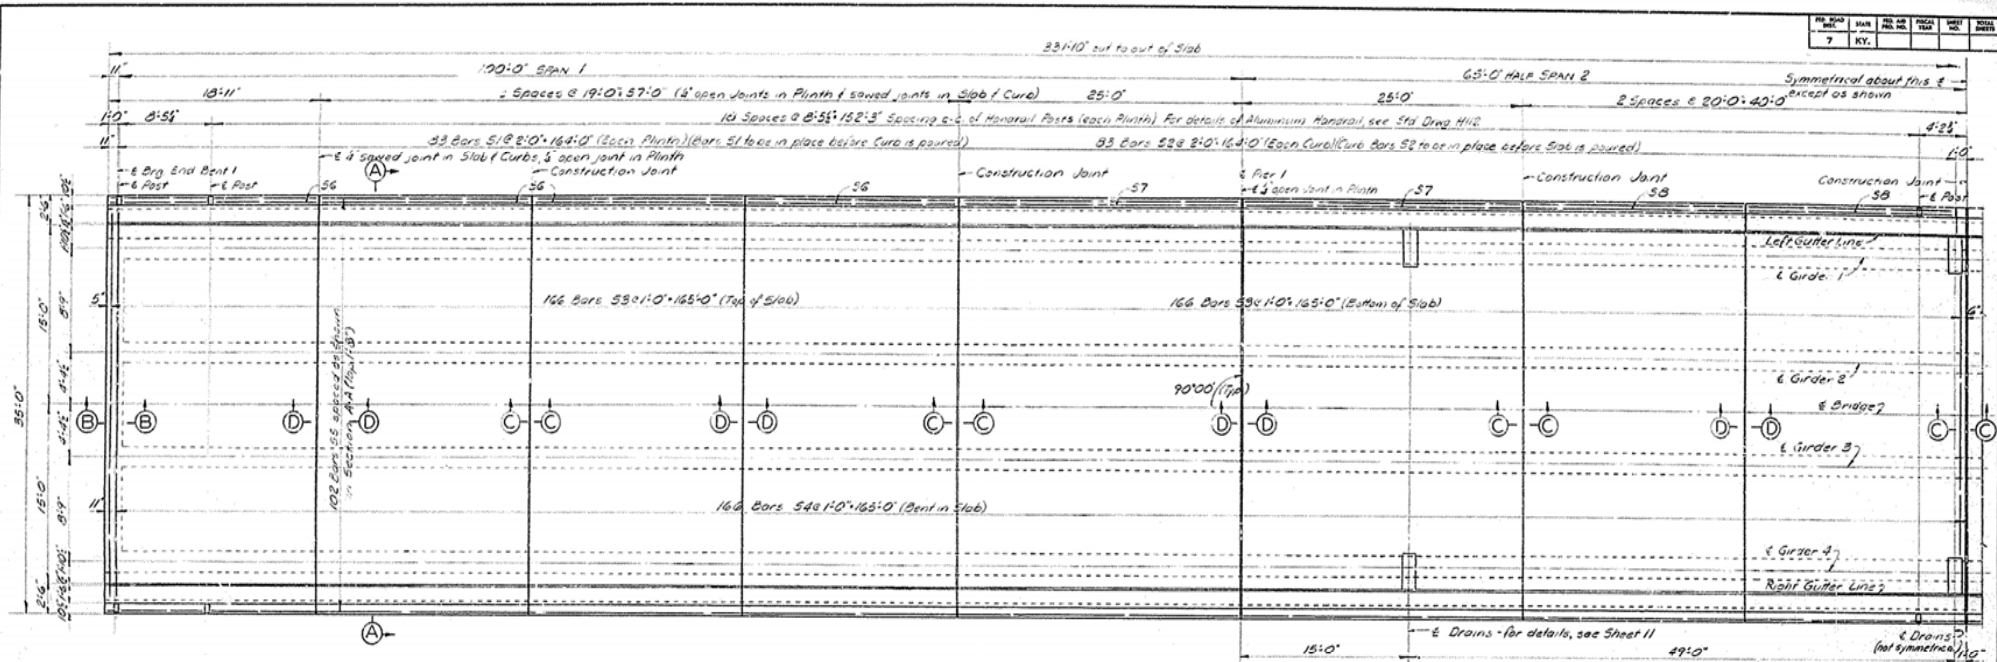 FED. ROAD DIST. STATE FED. AID PROJ. NO. FISCAL YEAR SHEET NO. TOTAL SHEETS
7 KY.
331'-10" out to out of Slab
11" 100'-0" SPAN 1 65'-0" HALF SPAN 2 Symmetrical about this ℄
except as shown
18'-11" Spaces @ 19'-0"=57'-0" (¼" open Joints in Plinth & sawed joints in Slab & Curb) 25'-0" 25'-0" 2 Spaces @ 20'-0"=40'-0"
1'-0" 8'-5½" 18 Spaces @ 8'-5½"=152'-3" Spacing c-c. of Handrail Posts (each Plinth) For details of Aluminum Handrail, see Std Drwg H112 4'-2½"
11" 83 Bars S1@ 2'-0"=164'-0" (Each Plinth)(Bars S1 to be in place before Curb is poured) 83 Bars S2@ 2'-0"=164'-0" (Each Curb)(Curb Bars S2 to be in place before Slab is poured) 1'-0"
℄ ¼" sawed joint in Slab & Curbs, ¼" open joint in Plinth
℄ Brg End Bent 1 A Construction Joint Construction Joint ℄ Pier 1 Construction Joint Construction Joint
℄ Post ℄ Post S6 S6 S6 S7 ℄ ¼" open Joint in Plinth S7 S8 S8 ℄ Post
2'-6" 10½"
Left Gutter Line
℄ Girder 1
5" 166 Bars S3@1'-0"=165'-0" (Top of Slab) 166 Bars S3@1'-0"=165'-0" (Bottom of Slab) 6"
15'-0" 8'-9"
102 Bars S5 spaced as shown
in Section A-A (Typ.)
35'-0" 4'-4½" 90°00' (Typ) ℄ Girder 2
℄ Bridge
B B D D C C D D C C D D C C D D C C
4'-4½" ℄ Girder 3
15'-0" 8'-9" 11" 166 Bars S4@1'-0"=165'-0" (Bent in Slab)
℄ Girder 4
Right Gutter Line
2'-6" 10½"
A ℄ Drains - for details, see Sheet 11 ℄ Drains
(not symmetrical)
15'-0" 49'-0" 1'-0"